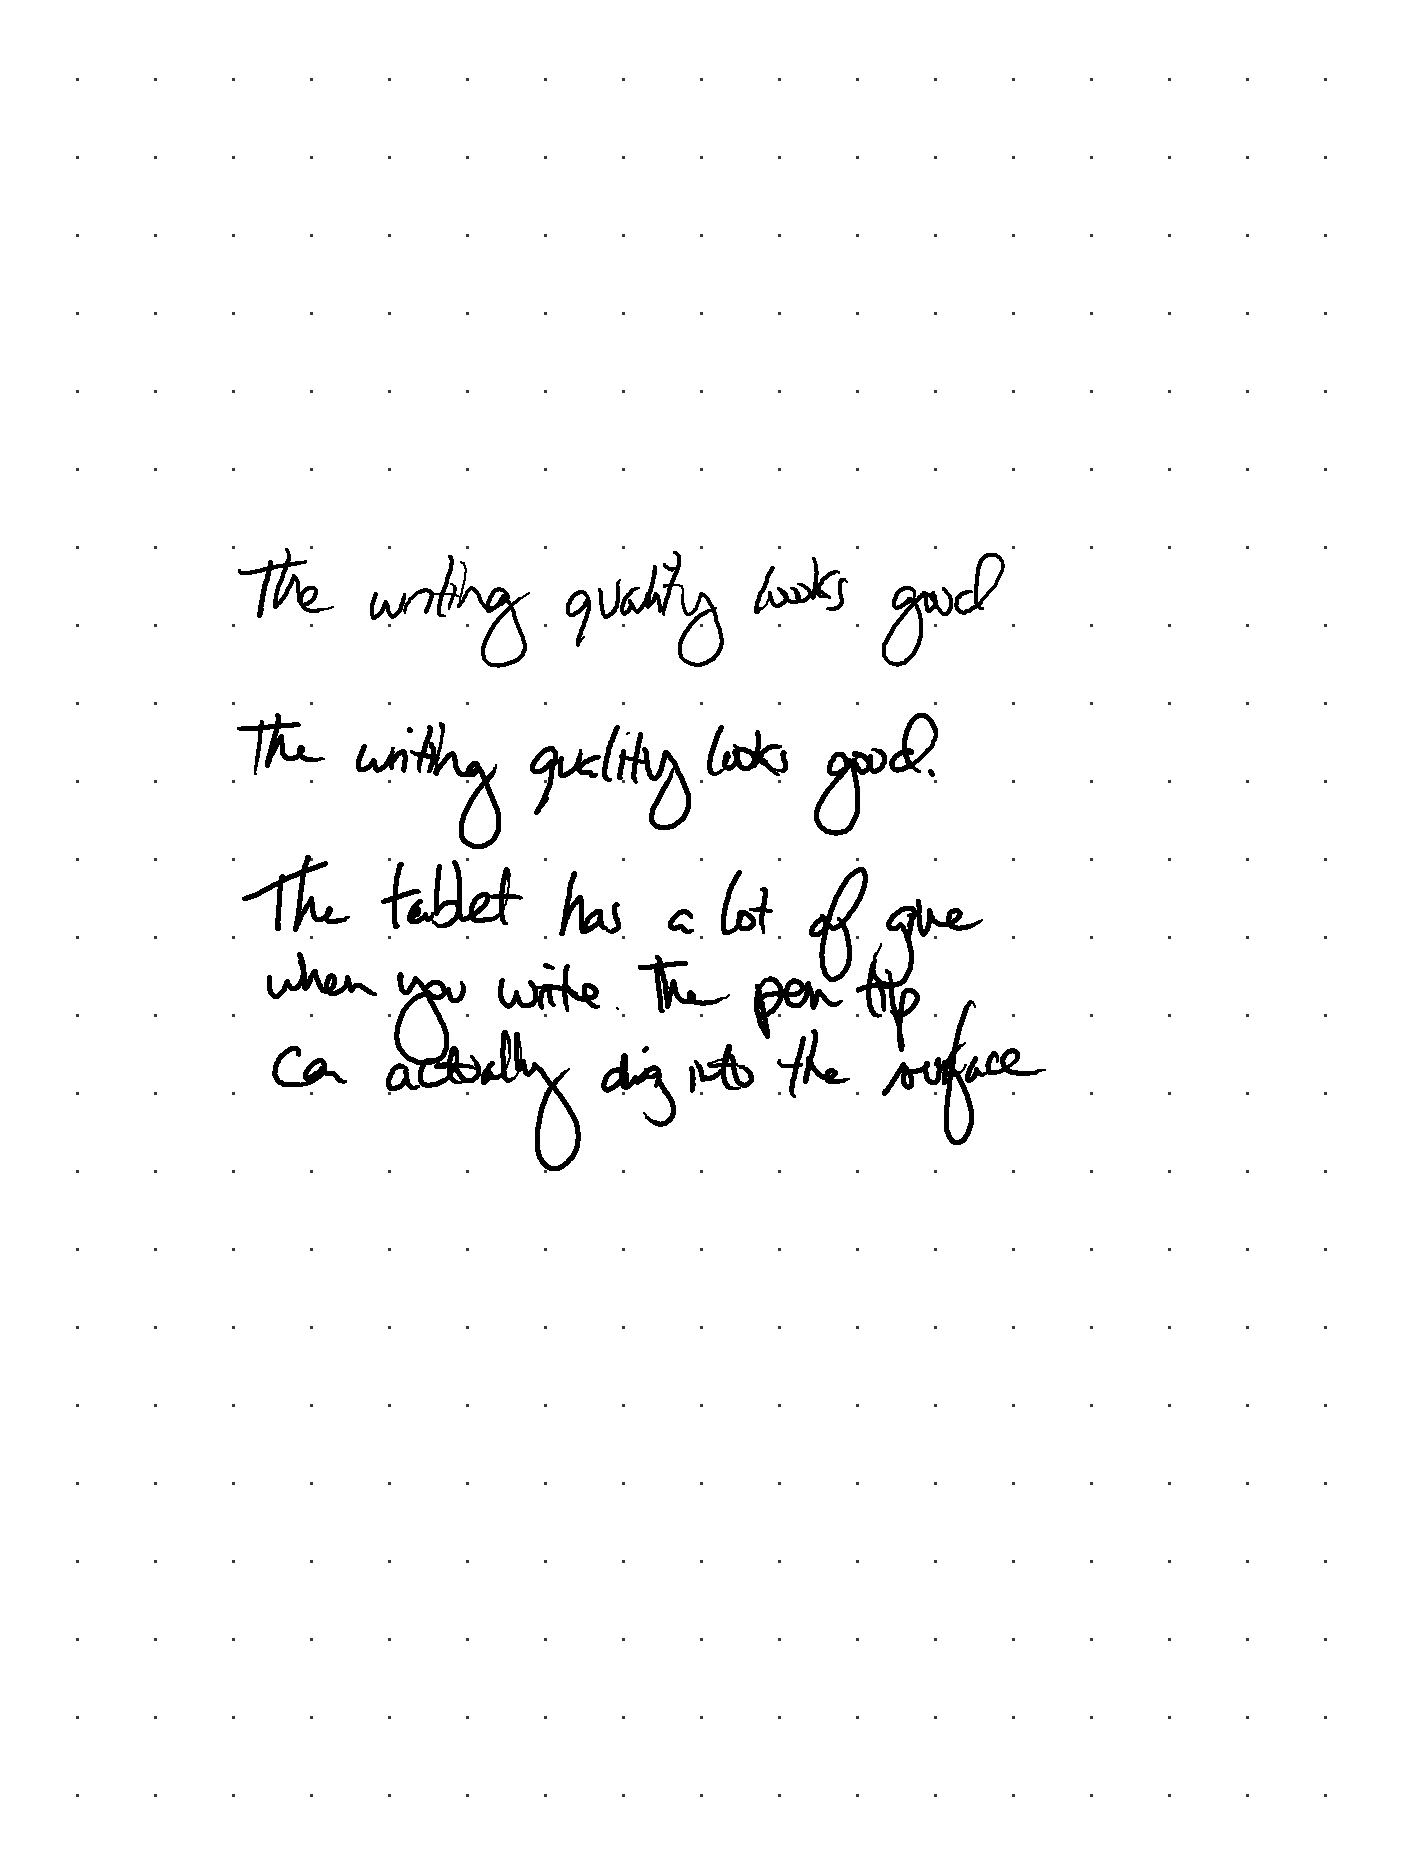 The writing quality looks good
The writing quality looks good.
The tablet has a lot of give
when you write. The pen tip
can actually dig into the surface